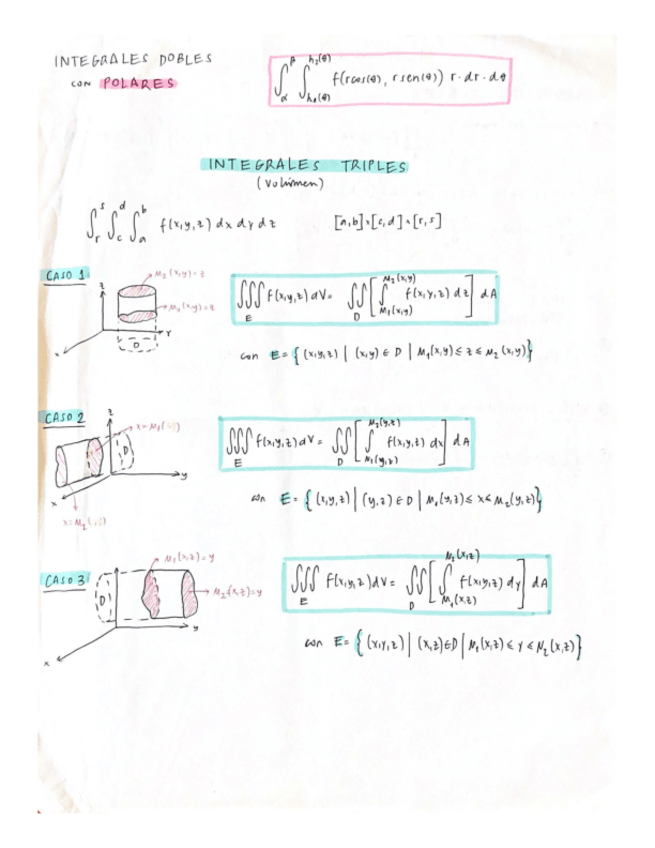 INTEGRALES DOBLES
con POLARES
∫_α^β ∫_{h₁(θ)}^{h₂(θ)} f(rcos(θ), rsen(θ)) r · dr · dθ
INTEGRALES TRIPLES
(volúmen)
∫_r^s ∫_c^d ∫_a^b f(x,y,z) dx dy dz [a,b]×[c,d]×[r,s]
CASO 1
z
M₂(x,y)=z
M₁(x,y)=z
Y
D
x
∭_E f(x,y,z) dV = ∬_D [∫_{M₁(x,y)}^{M₂(x,y)} f(x,y,z) dz] dA
con E = {(x,y,z) | (x,y) ∈ D | M₁(x,y) ≤ z ≤ M₂(x,y)}
CASO 2
z
D
y
x
∭_E f(x,y,z) dV = ∬_D [∫_{M₁(y,z)}^{M₂(y,z)} f(x,y,z) dx] dA
con E = {(x,y,z) | (y,z) ∈ D | M₁(y,z) ≤ x ≤ M₂(y,z)}
CASO 3
D
M₁(x,z)=y
M₂(x,z)=y
y
x
∭_E f(x,y,z) dV = ∬_D [∫_{M₁(x,z)}^{M₂(x,z)} f(x,y,z) dy] dA
con E = {(x,y,z) | (x,z) ∈ D | M₁(x,z) ≤ y ≤ M₂(x,z)}